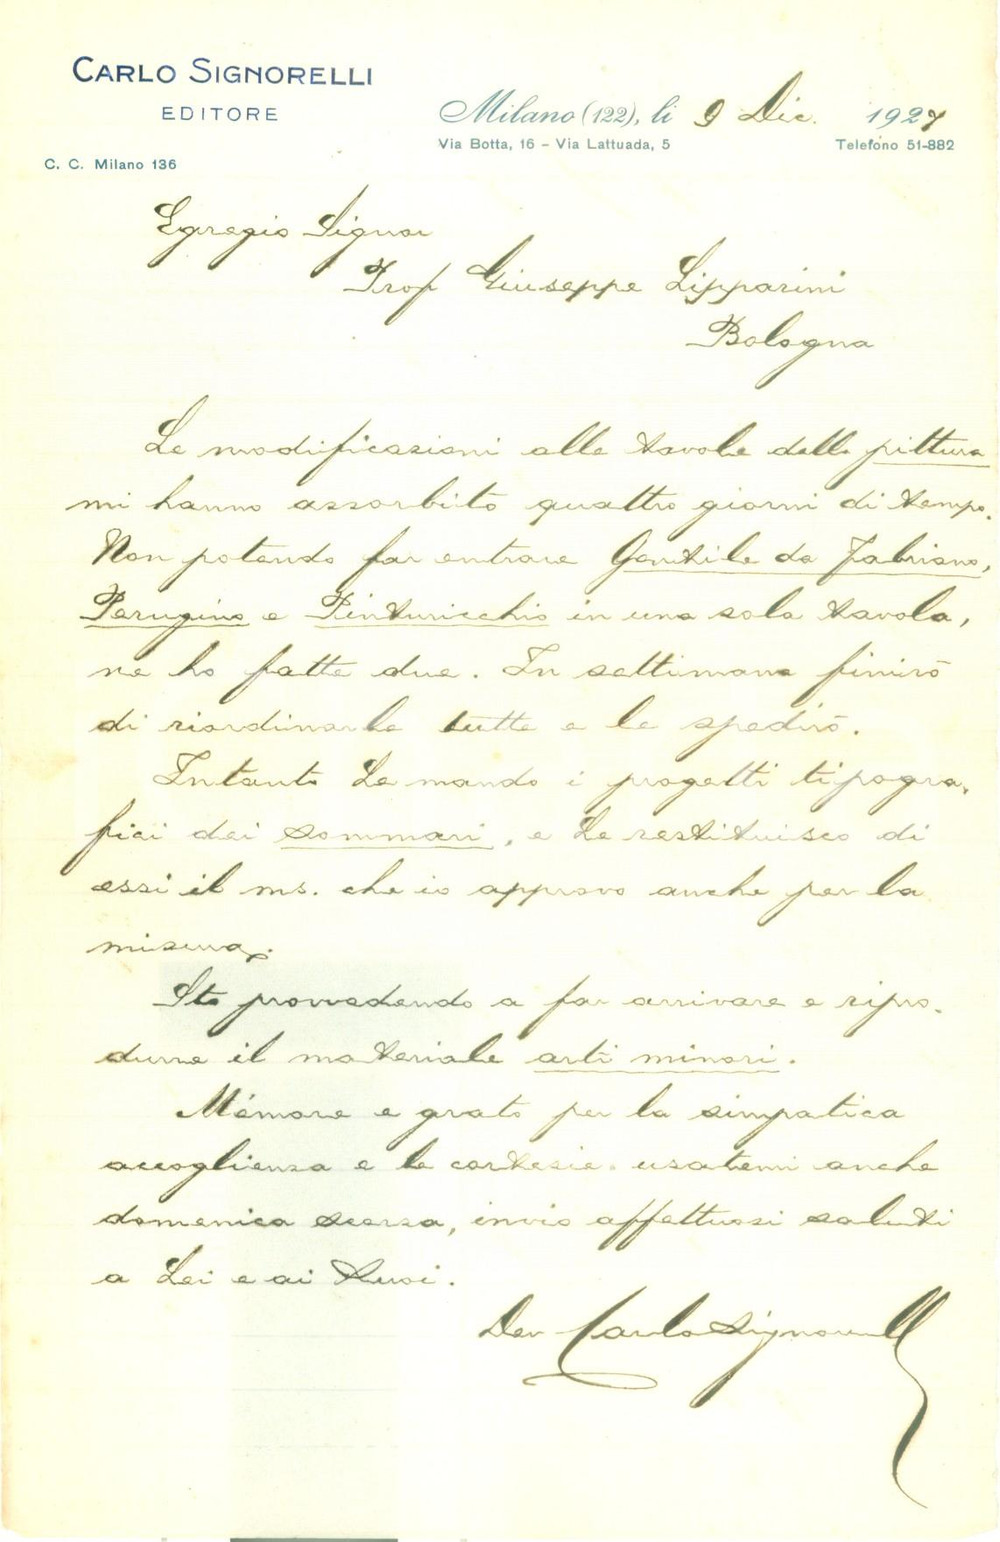 CARLO SIGNORELLI
EDITORE
C. C. Milano 136
Milano (122), li 9 Dic. 1927
Via Botta, 16 - Via Lattuada, 5
Telefono 51-882
Egregio Signor
Prof Giuseppe Lipparini
Bologna
Le modificazioni alle tavole della pittura
mi hanno assorbito quattro giorni di tempo.
Non potendo far entrare Gentile da Fabriano,
Perugino e Pinturicchio in una sola tavola,
ne ho fatte due. In settimana finirò
di riordinarle tutte e le spedirò.
Intanto Le mando i progetti tipogra-
fici dei sommari, e Le restituisco di
essi il ms. che io approvo anche per la
misura.
Sto provvedendo a far arrivare e ripro-
durre il materiale arti minori.
Mémore e grato per la simpatica
accoglienza e le cortesie usatemi anche
domenica scorsa, invio affettuosi saluti
a Lei e ai Suoi.
Dev Carlo Signorelli